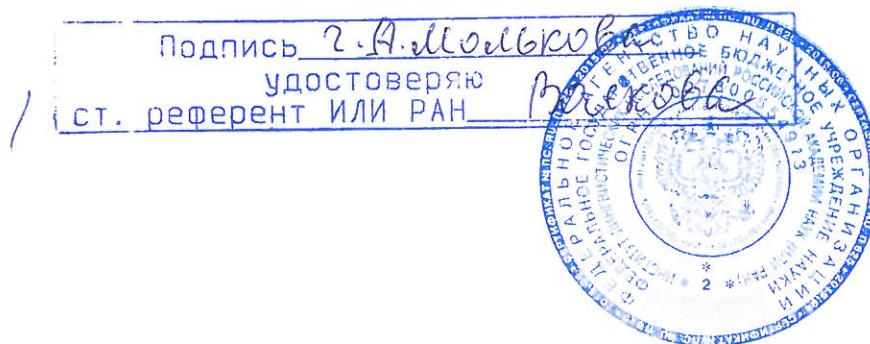 Подпись Г.А.Молькова
удостоверяю
ст. референт ИЛИ РАН
ФЕДЕРАЛЬНОЕ АГЕНТСТВО НАУЧНЫХ ОРГАНИЗАЦИЙ
ФЕДЕРАЛЬНОЕ ГОСУДАРСТВЕННОЕ БЮДЖЕТНОЕ УЧРЕЖДЕНИЕ НАУКИ
ИНСТИТУТ ЛИНГВИСТИЧЕСКИХ ИССЛЕДОВАНИЙ РОССИЙСКОЙ АКАДЕМИИ НАУК (ИЛИ РАН)
ОГРН
* 2 *